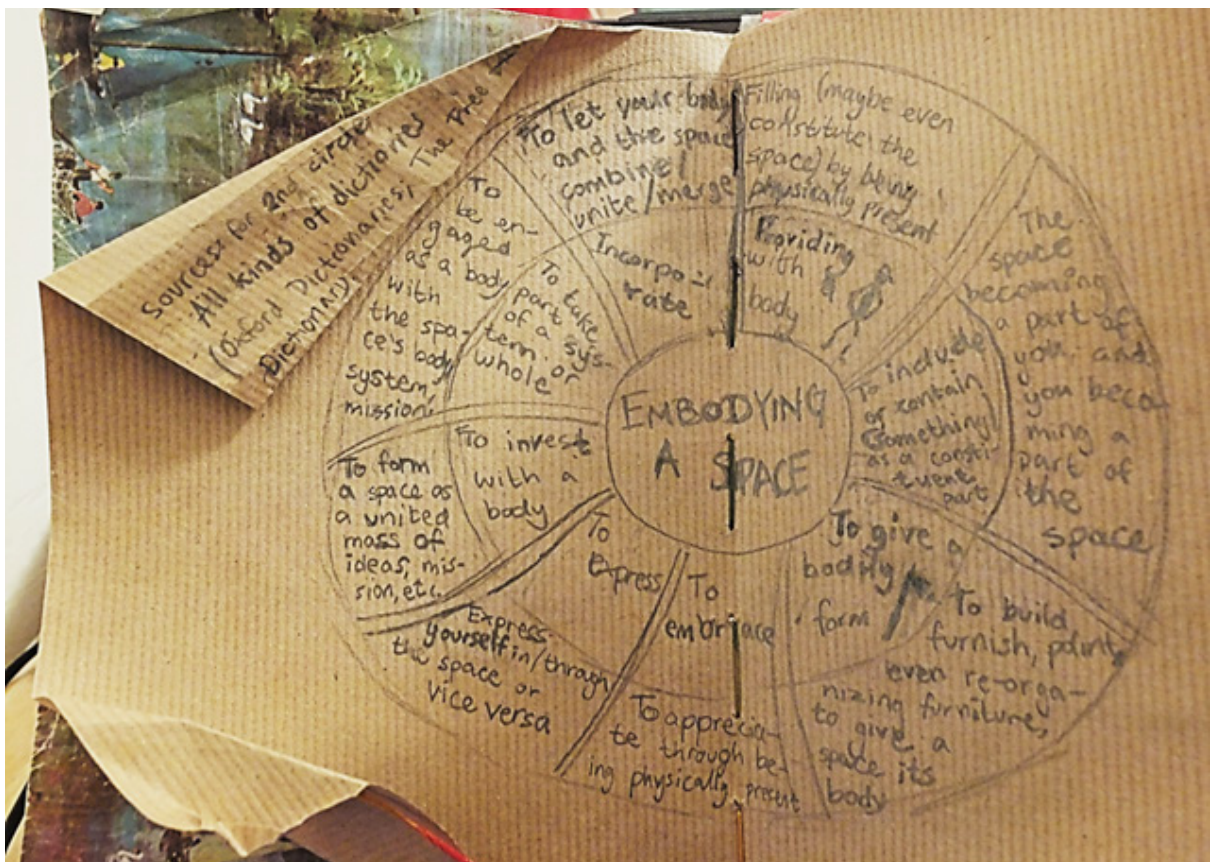 Sources for 2nd circle
All kinds of dictiories
(Oxford Dictionaries, The Free
Dictionary)
EMBODYING
A SPACE
Providing
with
body
To include
or contain
(something)
as a consti-
tuent
part
To give a
bodily
form
To
embrace
To
Express
To invest
with a
body
To take
part
of a sys-
tem or
whole
Incorpo-
rate
Filling (maybe even
constitute the
space) by being
physically present
The
space
becoming
a part of
you and
you beco-
ming a
part of
the
space
To build,
furnish, paint,
even re-orga-
nizing furniture,
to give a
space its
body
To apprecia-
te through be-
ing physically present
Express
yourself in/through
the space or
vice versa
To form
a space as
a united
mass of
ideas, mis-
sion, etc.
To
be en-
gaged
as a body
with
the spa-
ce's body
system,
mission,
To let your body
and the space
combine/
unite/merge